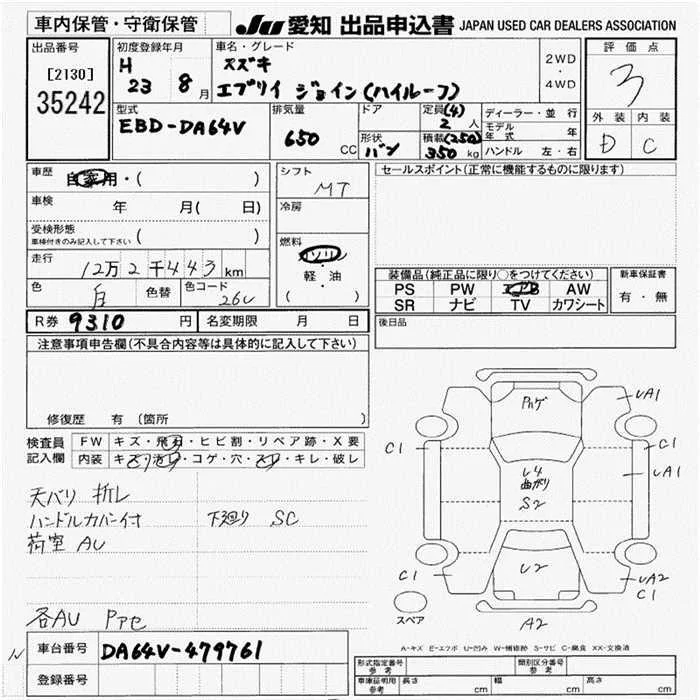 車内保管・守衛保管
JU 愛知 出品申込書 JAPAN USED CAR DEALERS ASSOCIATION
出品番号
[2130]
35242
初度登録年月
H
23 8月
車名・グレード
スズキ
エブリィ ジョイン(ハイルーフ)
2WD
・
4WD
評価点
3
外装 内装
D C
型式
EBD-DA64V
排気量
650 CC
ドア
形状
バン
定員(4)
2人
積載(250)
350kg
ディーラー・並行
モデル年式 年
ハンドル 左・右
車歴
自家用・( )
車検
年 月( 日)
受検形態
車検付きのみ記入して下さい ( )
走行
12万2千443km
色
白
色替
色コード
26U
シフト
MT
冷房
燃料
ガソリン
軽・油
( )
セールスポイント(正常に機能するものに限ります)
装備品(純正品に限り○をつけてください)
PS PW エアB AW
SR ナビ TV カワシート
新車保証書
有・無
後日品
R券 9310円 名変期限 月 日
注意事項申告欄(不具合内容等は具体的に記入して下さい)
修復歴 有(箇所 )
検査員
記入欄
FW キズ・飛石・ヒビ割・リペア跡・X要
内装 キズ・汚レ・コゲ・穴・スレ・キレ・破レ
天バリ 折レ
ハンドルカバー付 下廻り SC
荷室 AU
各AU Pアセ
車台番号 DA64V-479761
登録番号
Pハゲ
UA1
C1
C1
UA1
U4
曲がり
S2
U2
C1
UA2
C1
スペア
A2
A-キズ E-エクボ U-凹み W-補修跡 S-サビ C-腐食 XX-交換済
形式指定番号 参考
類別区分番号 参考
車庫証明用 参考
長さ cm
幅 cm
高さ cm